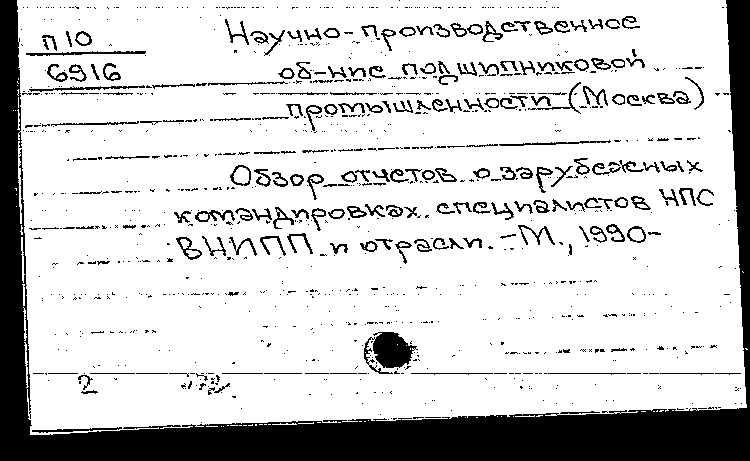 П10
6916
Научно-производственное
об-ние подшипниковой
промышленности (Москва)
Обзор отчетов о зарубежных
командировках специалистов НПС
ВНИПП и отрасли. -М., 1990-
2